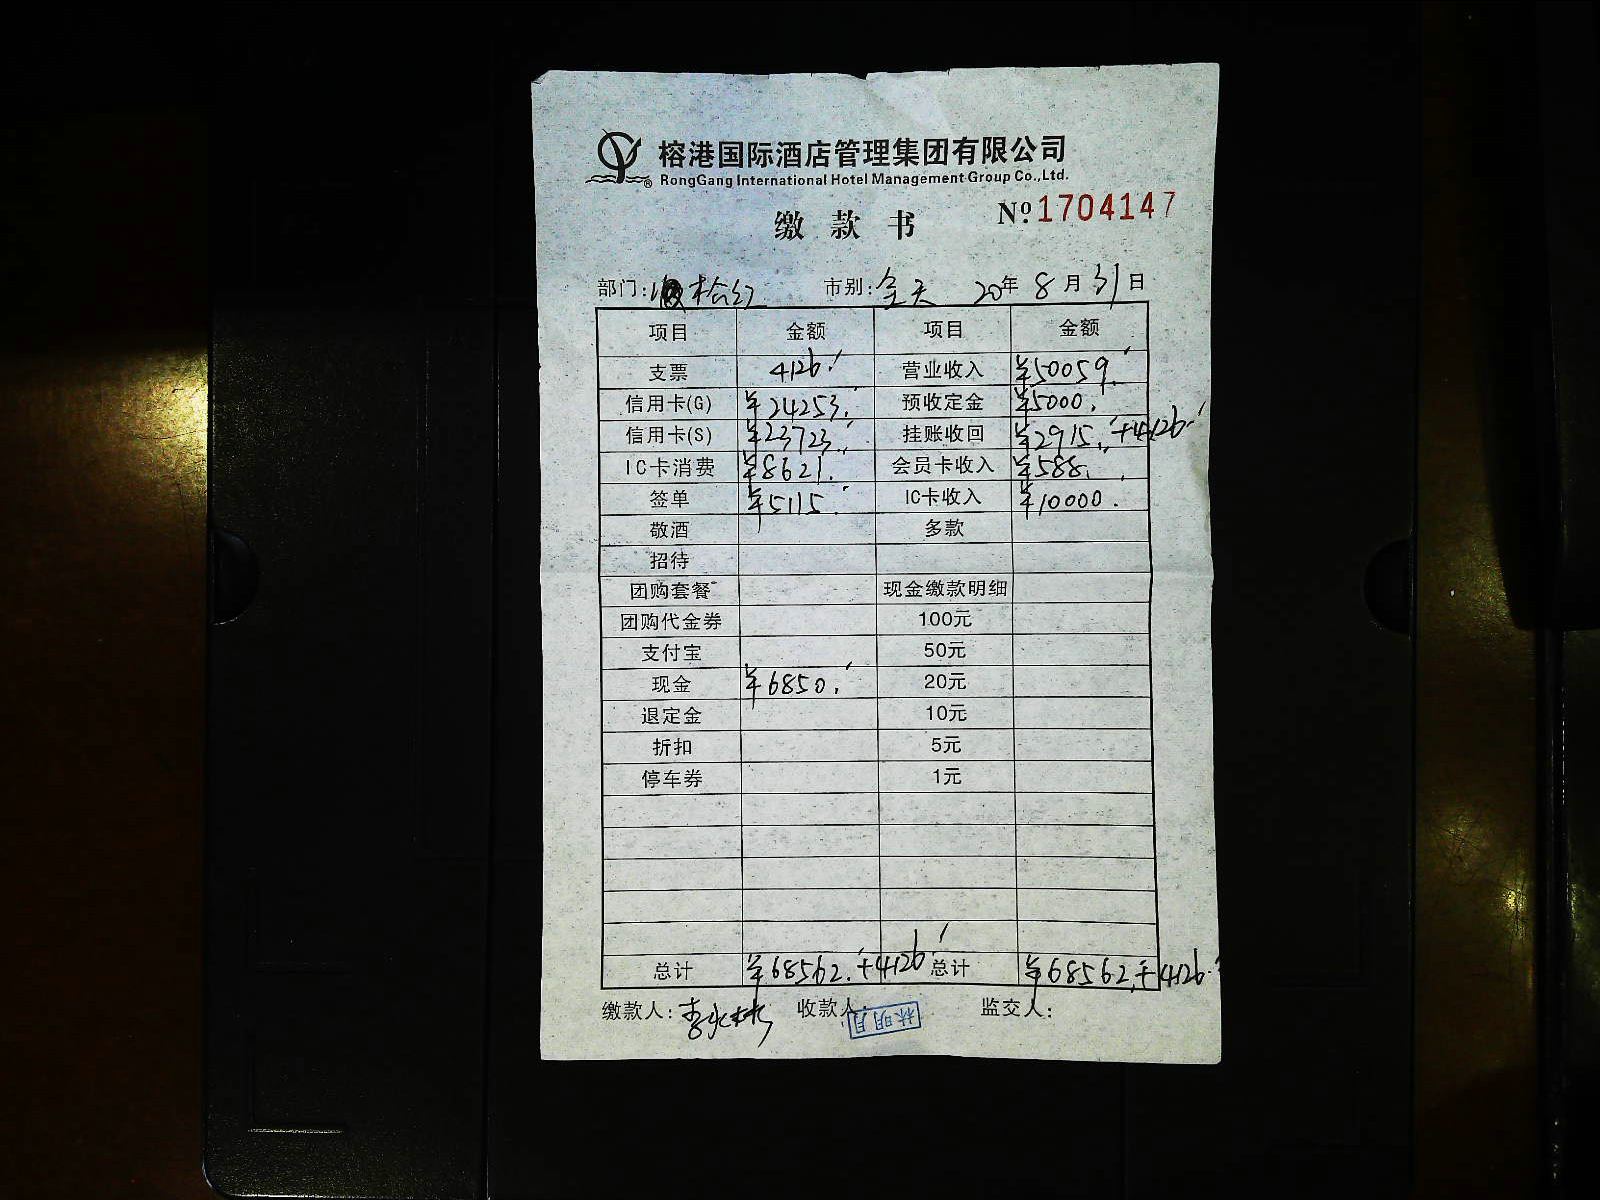 榕港国际酒店管理集团有限公司
RongGang International Hotel Management Group Co.,Ltd.
缴款书 Nº 1704147
部门: 市别: 全天 20年 8月 31日
项目 金额 项目 金额
支票 4126. 营业收入 ¥50059.
信用卡(G) ¥24253. 预收定金 ¥5000.
信用卡(S) ¥23723. 挂账收回 ¥2915.+4126.
IC卡消费 ¥8621. 会员卡收入 ¥588.
签单 ¥5115. IC卡收入 ¥10000.
敬酒 多款
招待
团购套餐 现金缴款明细
团购代金券 100元
支付宝 50元
现金 ¥6850. 20元
退定金 10元
折扣 5元
停车券 1元
总计 ¥68562.+4126 总计 ¥68562.+4126.
缴款人: 李 收款人: 林明月 监交人: